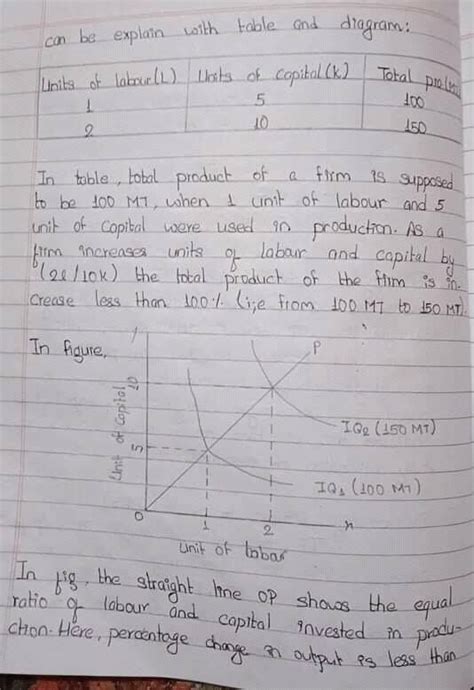 can be explain with table and diagram:
Units of labour(L) Units of capital(k) Total product
1 5 100
2 10 150
In table, total product of a firm is supposed
to be 100 MT, when 1 unit of labour and 5
unit of capital were used in production. As a
firm increases units of labour and capital by
(2l/10k) the total product of the firm is in-
crease less than 100% (i;e from 100 MT to 150 MT).
In figure,
P
10
IQ2 (150 MT)
Unit of capital
5
IQ1 (100 MT)
0 1 2 x
Unit of labar
In fig, the straight line OP shows the equal
ratio of labour and capital invested in produ-
ction. Here, percentage change in output is less than